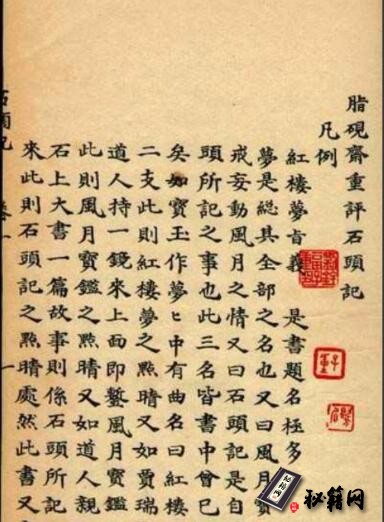 脂硯齋重評石頭記
凡例
紅樓夢旨義 是書題名極多
夢是総其全部之名也又曰風月寶
戒妄動風月之情又曰石頭記是自
頭所記之事也此三名皆書中曾已
矣如寶玉作夢〻中有曲名曰紅樓
二支此則紅樓夢之㸃睛又如賈瑞
道人持一鏡來上面即鏨風月寶鑑
此則風月寶鑑之㸃睛又如道人親
石上大書一篇故事則係石頭所記
來此則石頭記之㸃睛處然此書又
石頭記 卷一 一
子重
秘籍网